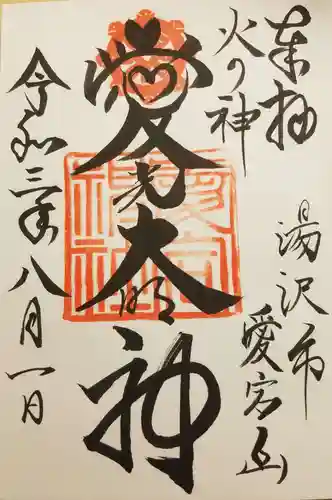 奉拝
火の神
湯沢市
愛宕山
愛
光
大
明
神
令和三年八月一日
愛宕神社